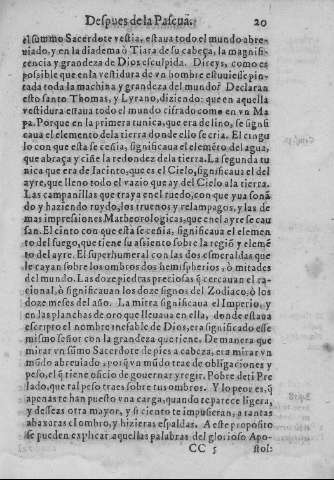 Despues de la Pascua. 20
el summo Sacerdote vestia, estaua todo el mundo abre-
uiado, y en la diadema ò Tiara de su cabeça, la magnifi-
cencia y grandeza de Dios esculpida. Direys, como es
possible que en la vestidura de vn hombre estuuiesse pin-
tada toda la machina y grandeza del mundo? Declaran
esto santo Thomas, y Lyrano, diziendo: que en aquella
vestidura estaua todo el mundo cifrado como en vn Ma
pa. Porque en la primera tunica, que era de lino, se signifi
caua el elemento de la tierra donde ello se cria. El cingu
lo con que esta se ceñia, significaua el elemẽto del agua,
que abraça y ciñe la redondez de la tierra. La segunda tu
nica que era de Iacinto, que es el Cielo, significaua el del
ayre, que lleno todo el vazio que ay del Cielo a la tierra.
Las campanillas que traya en el ruedo, con que yua sonã
do y haziendo ruydo, los truenos y relampagos, y las de
mas impressiones Matheorologicas, que en el ayre se cau
san. El cinto con que esta se ceñia, significaua el elemen
to del fuego, que tiene su assiento sobre la regiõ y elemẽ
to del ayre. El superhumeral con las dos esmeraldas que
le cayan sobre los ombros dos hemispherios, ò mitades
del mundo. Las doze piedras preciosas q̃ cercauan el ra-
cional, ò significauan los doze signos del Zodiaco, ò los
doze meses del año. La mitra significaua el Imperio, y
en las planchas de oro que lleuaua en ella, donde estaua
escripto el nombre inefable de Dios, era significado esse
mismo señor con la grandeza que tiene. De manera que
mirar vn sũmo Sacerdote de pies a cabeça, era mirar vn
mũdo abreuiado, porq̃ vn mũdo trae de obligaciones y
peso, el q̃ tiene oficio de gouernar y regir. Pobre de ti Pre
lado, que tal peso traes sobre tus ombros. Y lo peor es, q̃
apenas te han puesto vna carga, quando te parece ligera,
y desseas otra mayor, y si ciento te impusieran, a tantas
abaxaras el ombro, y hizieras espaldas. A este proposito
se pueden explicar aquellas palabras del glorioso Apo-
CC 5 stol: